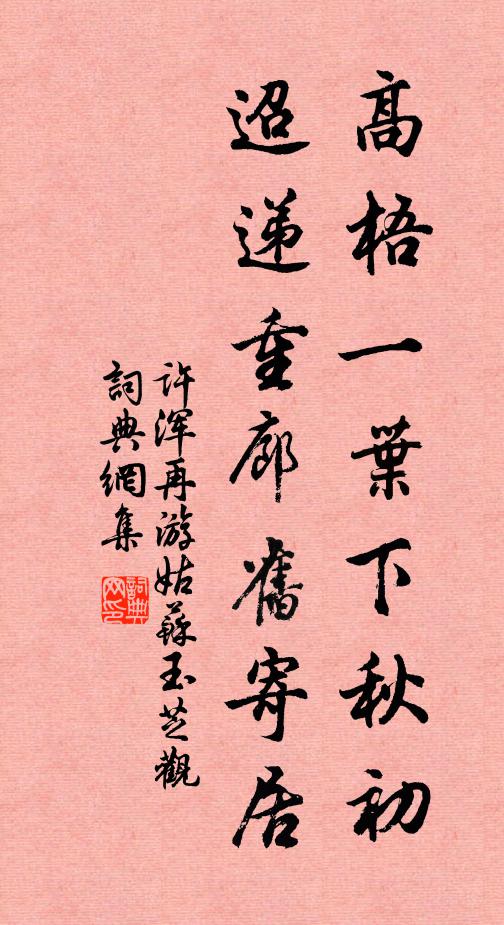 高梧一葉下秋初
迢递重廊舊寄居
许浑再游姑蘇玉芝觀
詞典網集
詞典网印